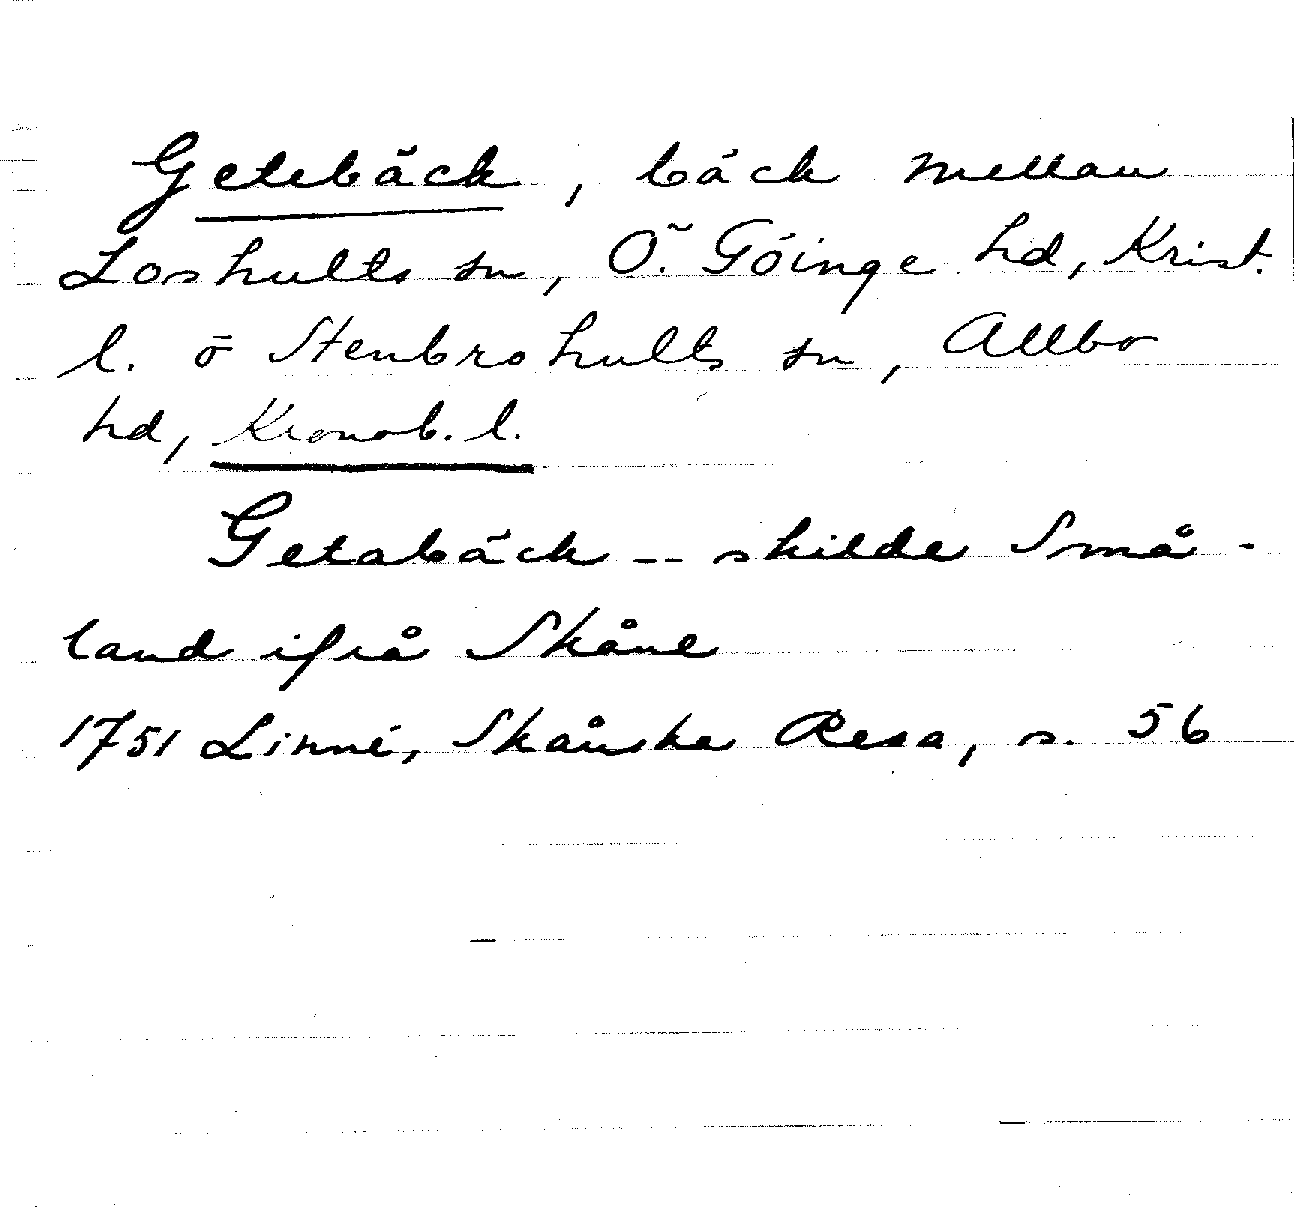 Getebäck, bäck mellan
Loshults sn, Ö. Göinge hd, Krist.
l. o Stenbrohults sn, Allbo
hd, Kronob. l.
Getabäck -- skilde Små-
land ifrå Skåne
1751 Linné, Skånska Resa, s. 56